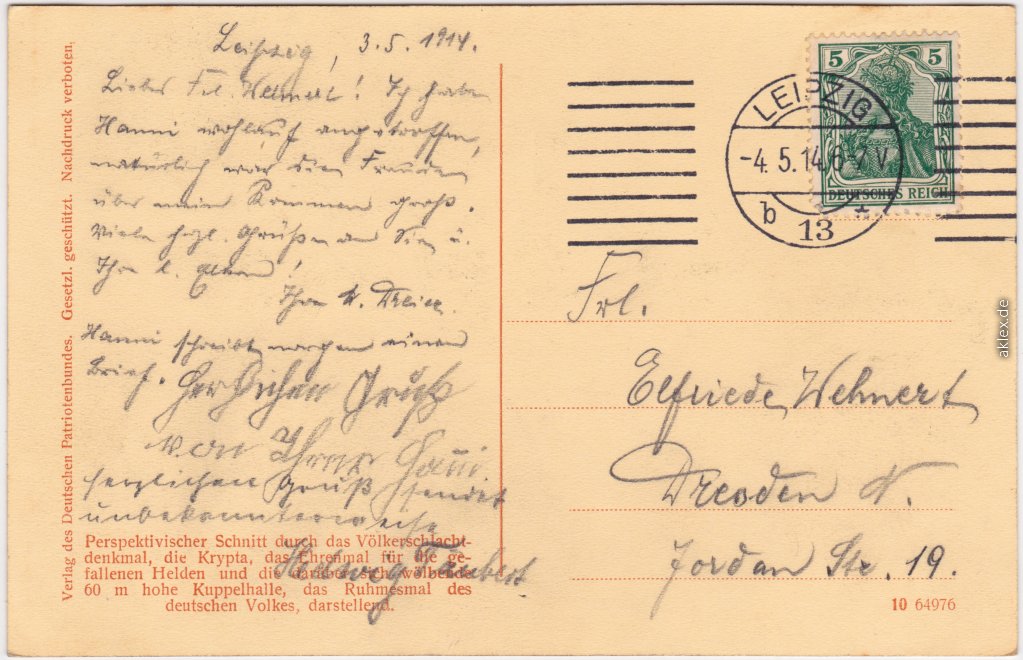 Leipzig, 3.5.1914.
Liebes Frl. Wehnert! Ich habe
Hanni wohlauf angetroffen,
natürlich war die Freude
über mein Kommen groß.
Viele hzl. Grüße an Sie u.
Ihre l. Eltern!
Ihre
Hanni schreibt morgen einen
Brief. Herzlichen Gruß
von Ihrer Hanni
herzlichen Gruß sendet
unbekannterweise
Hedwig Taubert
Perspektivischer Schnitt durch das Völkerschlacht-
denkmal, die Krypta, das Ehrenmal für die ge-
fallenen Helden und die darüber sich wölbende
60 m hohe Kuppelhalle, das Ruhmesmal des
deutschen Volkes, darstellend.
Verlag des Deutschen Patriotenbundes. Gesetzl. geschützt. Nachdruck verboten.
5 5
DEUTSCHES REICH
LEIPZIG
-4.5.14.6-7V.
b 13
Frl.
Elfriede Wehnert
Dresden N.
Jordan Str. 19.
10 64976
aklex.de